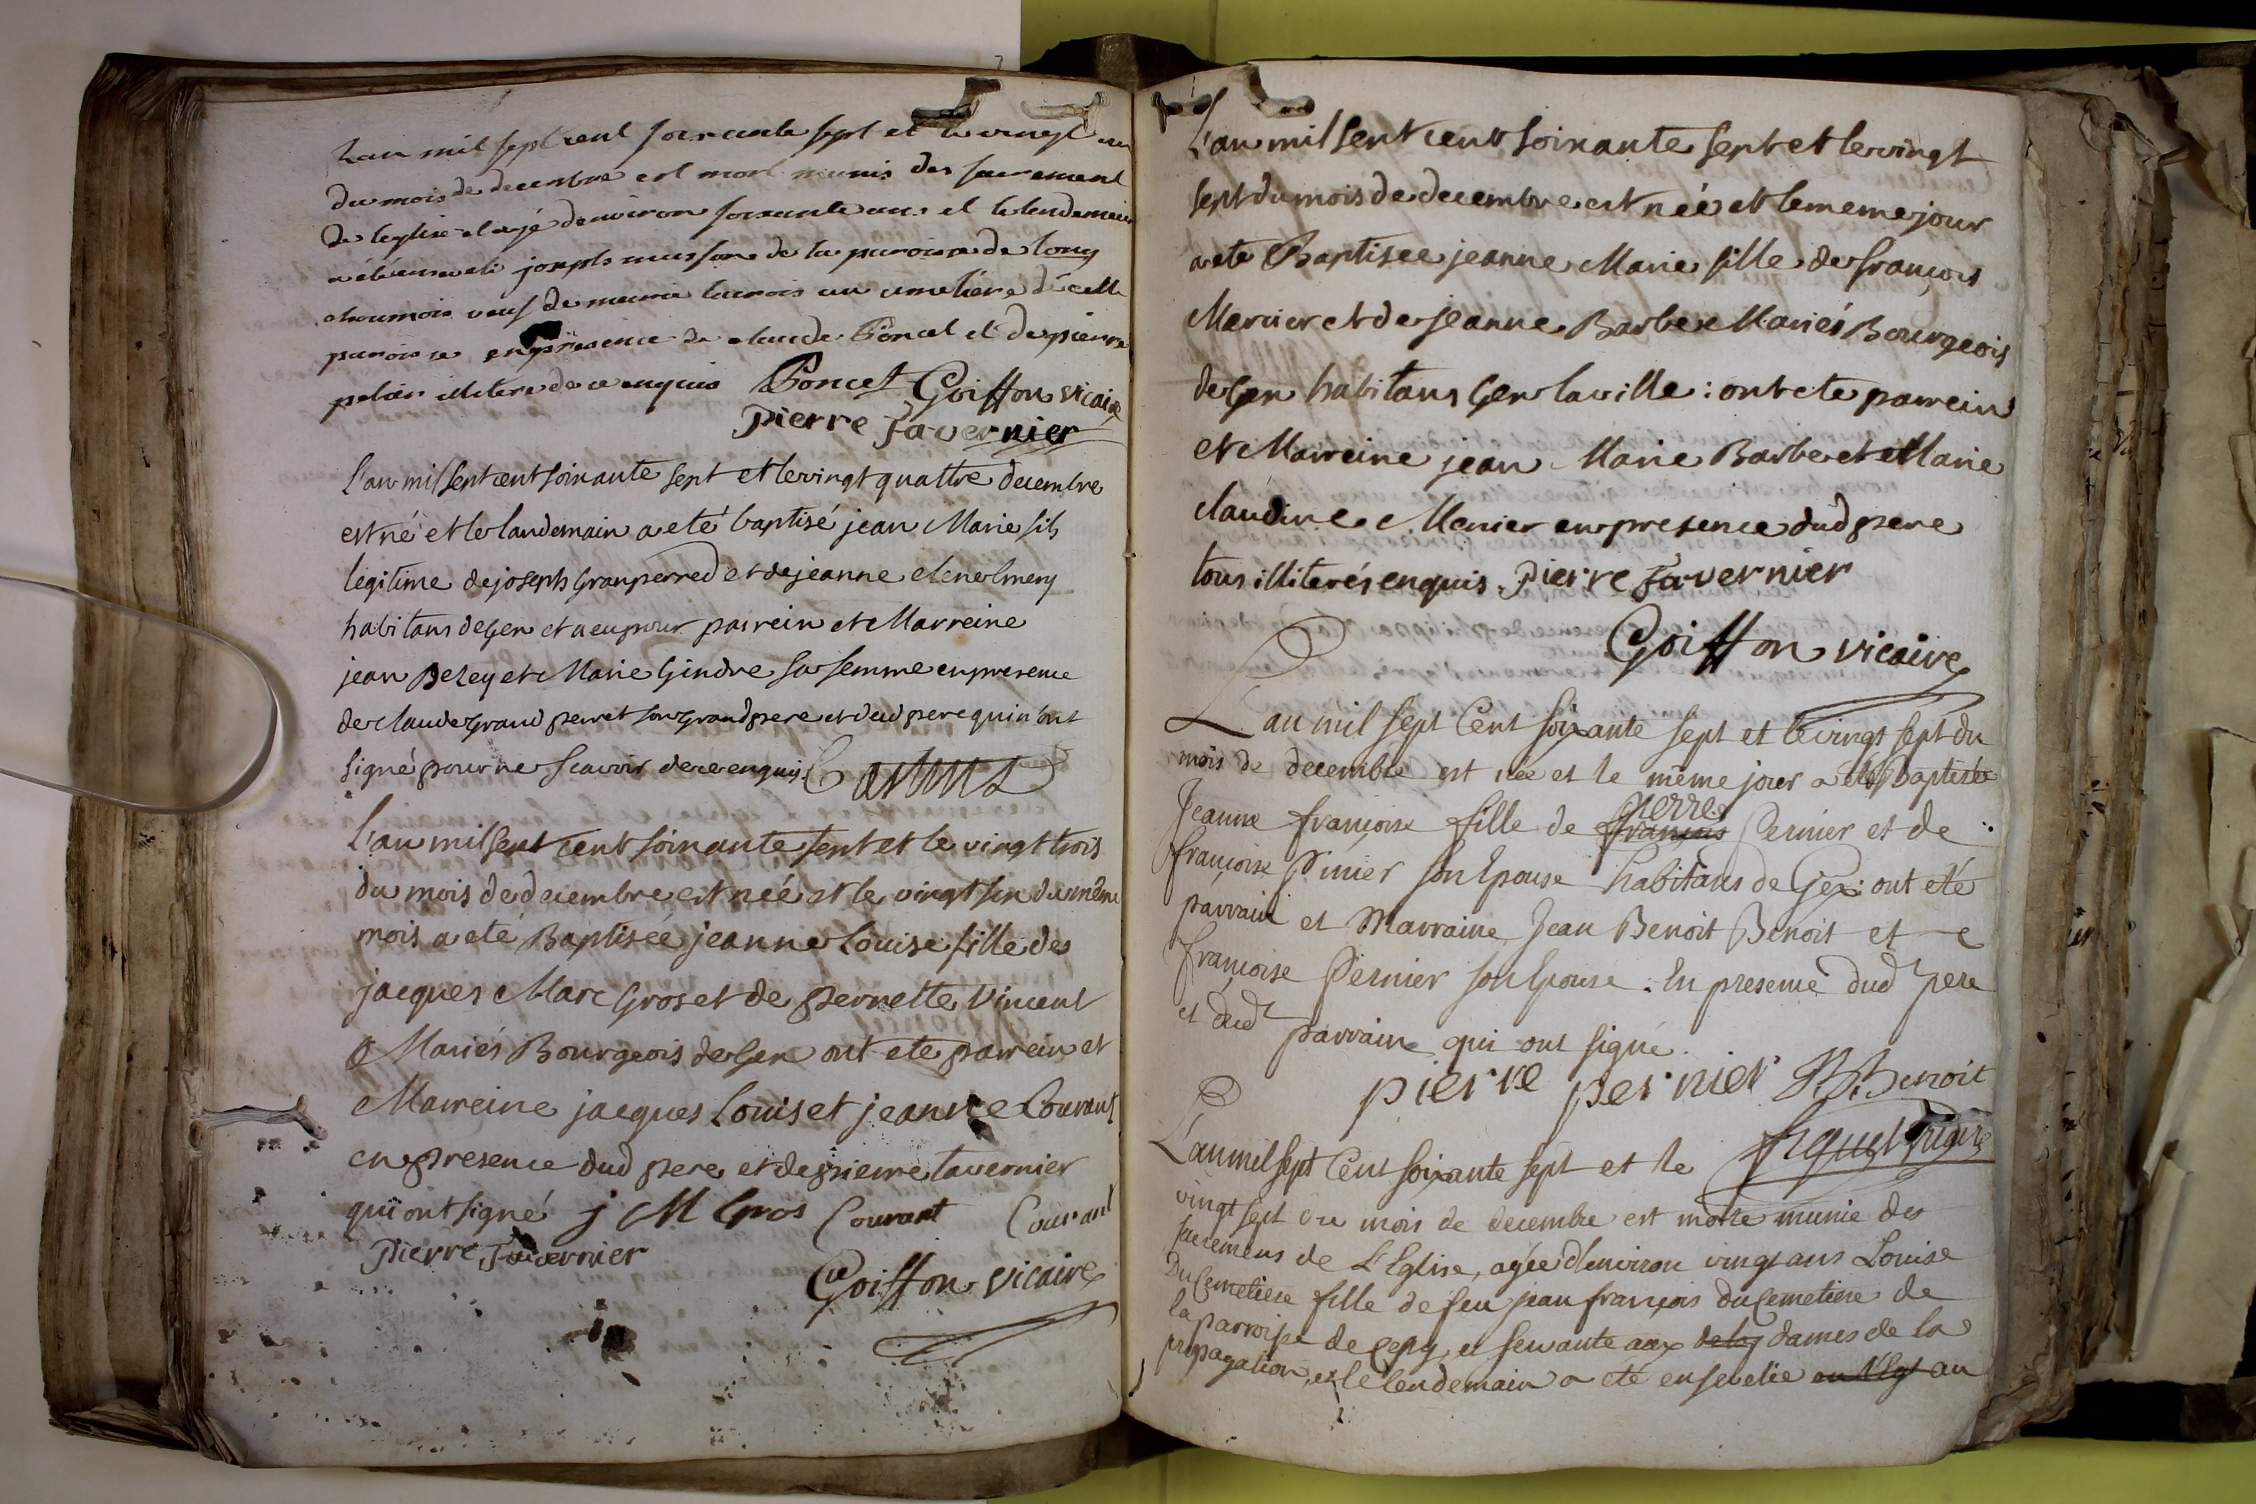 L'an mil sept cent soixante sept et le vingt un
du mois de decembre est mort munis des sacrement
de leglise et agé denviron soixante ans et le lendemain
a été enseveli joseph musson de la paroisse de long
chaumois veuf de marie lacrois au cimetiére d'icelle
paroisse en présence de claude Poncet et de pierre
illitere de ce enquis Poncet Goiffon vicaire
Pierre Tavernier
L'an mil sept cent soixante sept et le vingt quattre decembre
est né et le landemain a eté baptisé jean Marie fils
legitime de joseph Granperred et de jeanne emery
habitans de Gex et a eu pour parrein et Marreine
jean Dezey et Marie Gindre sa femme en presence
de claude Grand perret son Grand pere et dud pere qui n'ont
signé pour ne scavoir de ce enquis Castous
L'an mil sept cent soixante sept et le vingt trois
du mois de decembre est née et le vingt six du même
mois a eté Baptisée jeanne Louise fille des
jacques Marc Gros et de pernette Vincent
Mariés Bourgeois de Gex ont eté parrein et
Marreine jacques Louis et jeanne Courant
en presence dud pere et de pierre tavernier
qui ont signé j M Gros Courant Courant
Pierre Tavernier
Goiffon vicaire
L'an mil sept cent soixante sept et le vingt
sept du mois de decembre est née et le meme jour
a ete Baptisée jeanne Marie fille de françois
Mercier et de jeanne Barbe Mariés Bourgeois
de Gex habitans Gex la ville : ont ete parrein
et Marreine jean Marie Barbe et Marie
claudine Mercier en presence dud pere
tous illiterés enquis. Pierre Tavernier
Goiffon vicaire
L'an mil sept Cent soixante sept et le vingt sept du
mois de decembre est née et le même jour a été Baptisée
pierre
Jeanne françoise fille de françois Pernier et de
françoise Pinier son Epouse habitans de Gex : ont eté
parrain et Marraine Jean Benoit Benoit et
françoise Pernier son Epouse : En presence dud pere
et dud parrain qui ont signé.
pierre pernier JB Benoit
L'an mil sept Cent soixante sept et le
vingt sept du mois de decembre est morte munie des
sacremens de L'Eglise, agée d'environ vingt ans Louise
Du Cemetiere fille de feu jean françois du Cemetiere de
la parroisse de cessy, et servante aux de la dames de la
propagation, et le lendemain a eté ensevelie en l'Egl au